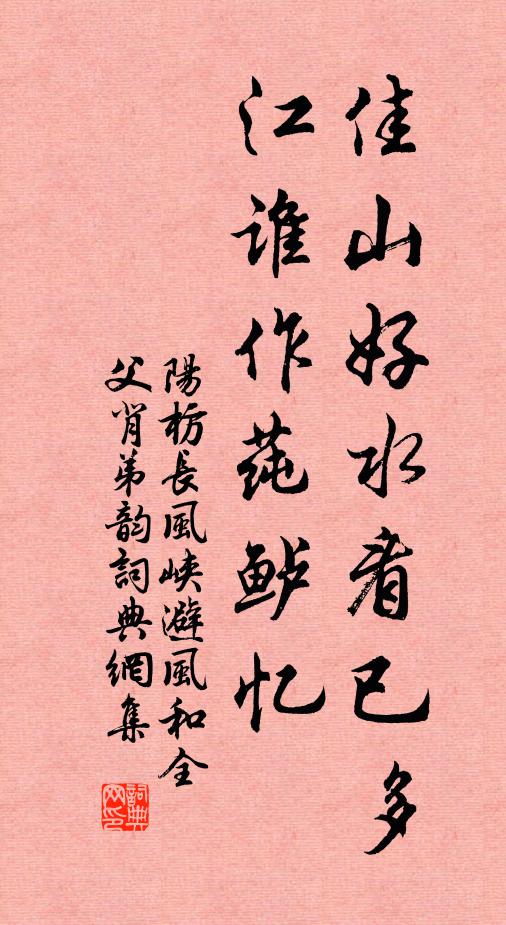 佳山好水看已多
江谁作莼鲈忆
陽枋長風峡避風和全
父肖弟韵詞典網集
詞典网印